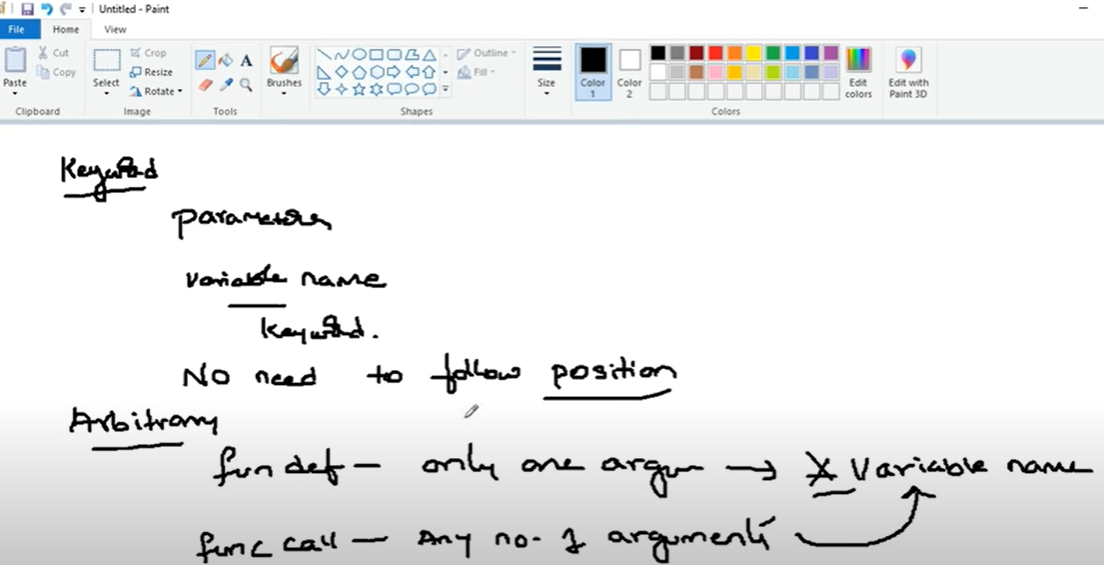 Untitled - Paint
File Home View
Cut
Copy
Paste
Clipboard
Crop
Resize
Rotate
Select
Image
A
Tools
Brushes
Outline
Fill
Shapes
Size
Color 1
Color 2
Edit colors
Edit with Paint 3D
Colors
Keyword
Parameters
Variable name
Keyword.
No need to follow position
Arbitrary
fun def - only one argum → * Variable name
func call - Any no. of arguments